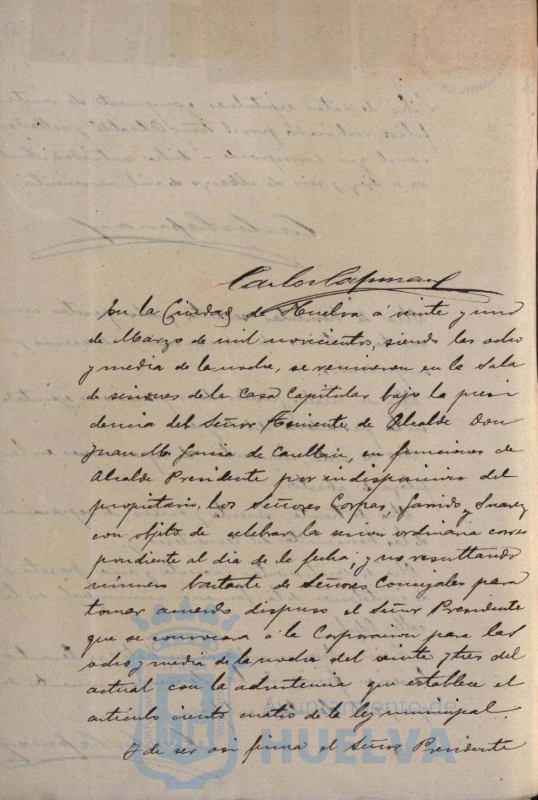 Carlos
En la Ciudad de Huelva á veinte y uno
de Marzo de mil novicientos, siendo las ocho
y media de la noche, se reunieron en la Sala
de sesiones de la Casa Capitular bajo la presi
dencia del Señor Teniente de Alcalde Don
Juan M. Garcia de, en funciones de
Alcalde Presidente por indisposicion del
propietario, los Señores Corpas, Garrido y Suarez
con objeto de celebrar la sesion ordinaria corres
pondiente al dia de la fecha; y no resultando
número bastante de Señores Concejales para
tomar acuerdo dispuso el Señor Presidente
que se convocara á la Corporacion para las
ocho y media de la noche del veinte y tres del
actual con la advertencia que establece el
artículo ciento cuatro de la ley municipal.
Y de ser asi firma el Señor Presidente
Ayuntamiento de
HUELVA